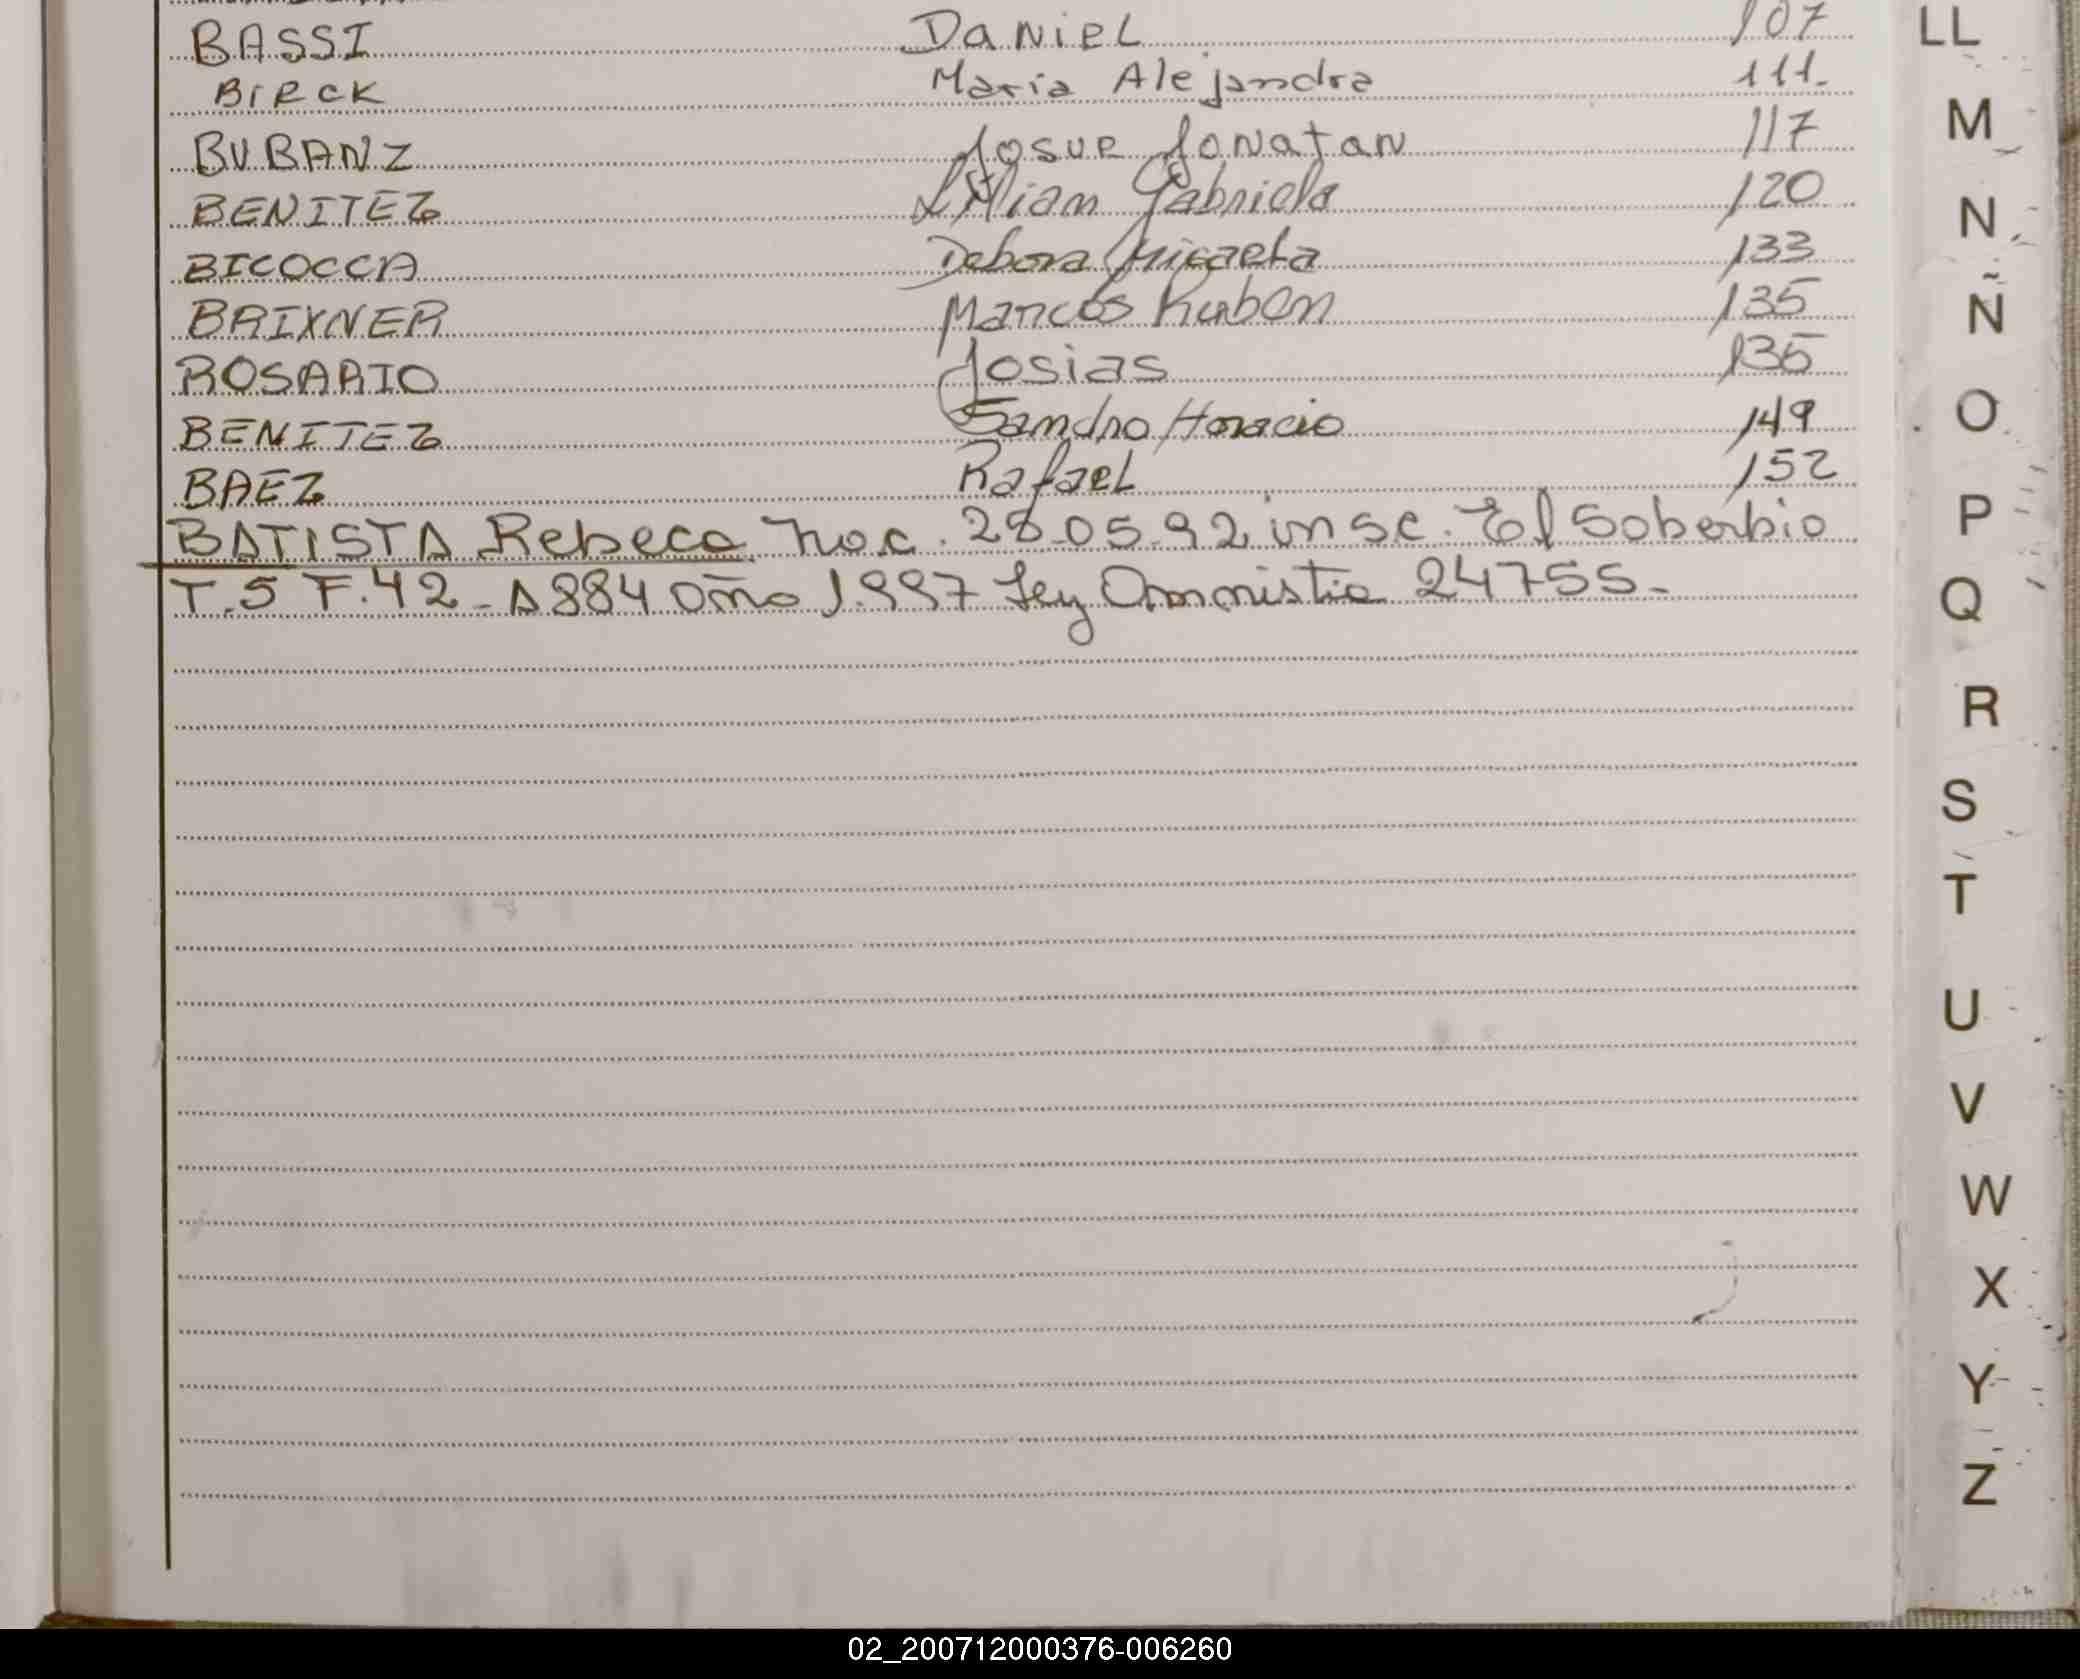 BASSI Daniel 107
Birck Maria Alejandra 111
BUBANZ Josue Jonatan 117
BENITEZ Liliam Gabriela 120
BICOCCA Debora Micaela 133
BRIXNER Marcos Ruben 135
ROSARIO Josias 135
BENITEZ Sandro Horacio 149
BAEZ Rafael 152
BATISTA Rebeca nac. 28-05-92 insc. El Soberbio
T.5 F.42 - A 884 año 1.997 Ley Amnistia 24755-
LL
M
N
Ñ
O
P
Q
R
S
T
U
V
W
X
Y
Z
02_200712000376-006260